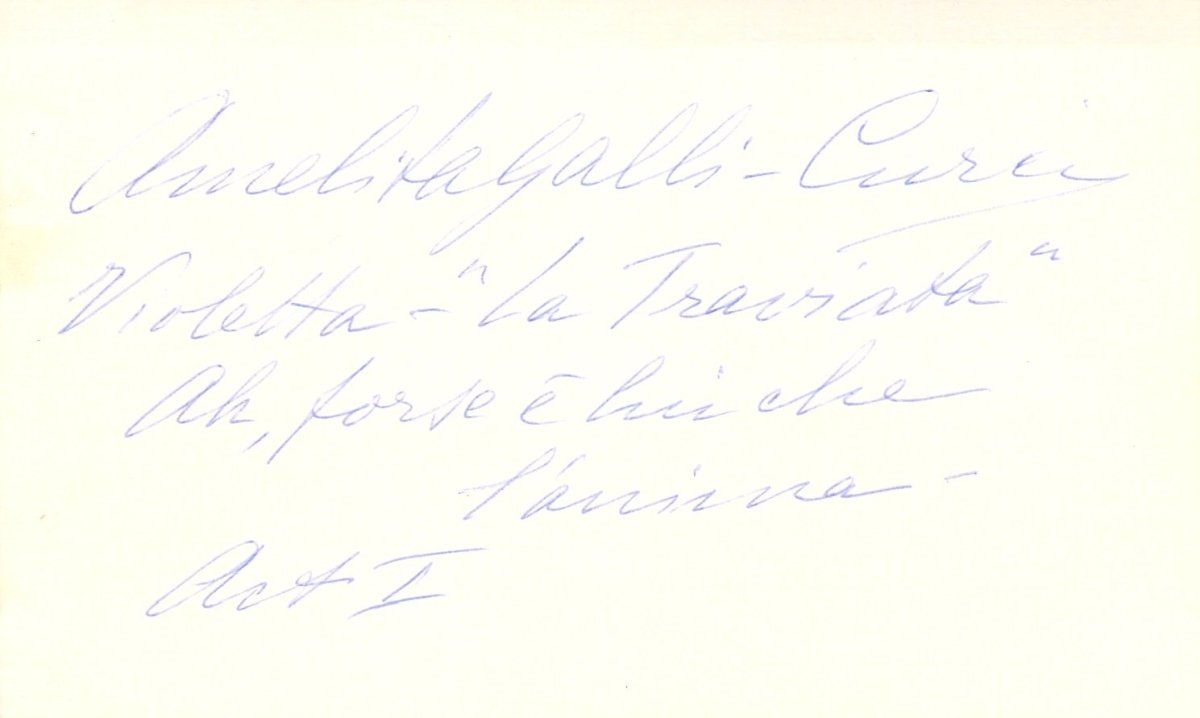 Amelita Galli-Curci
Violetta - "La Traviata"
Ah, forse è lui che
l'anima -
Act I